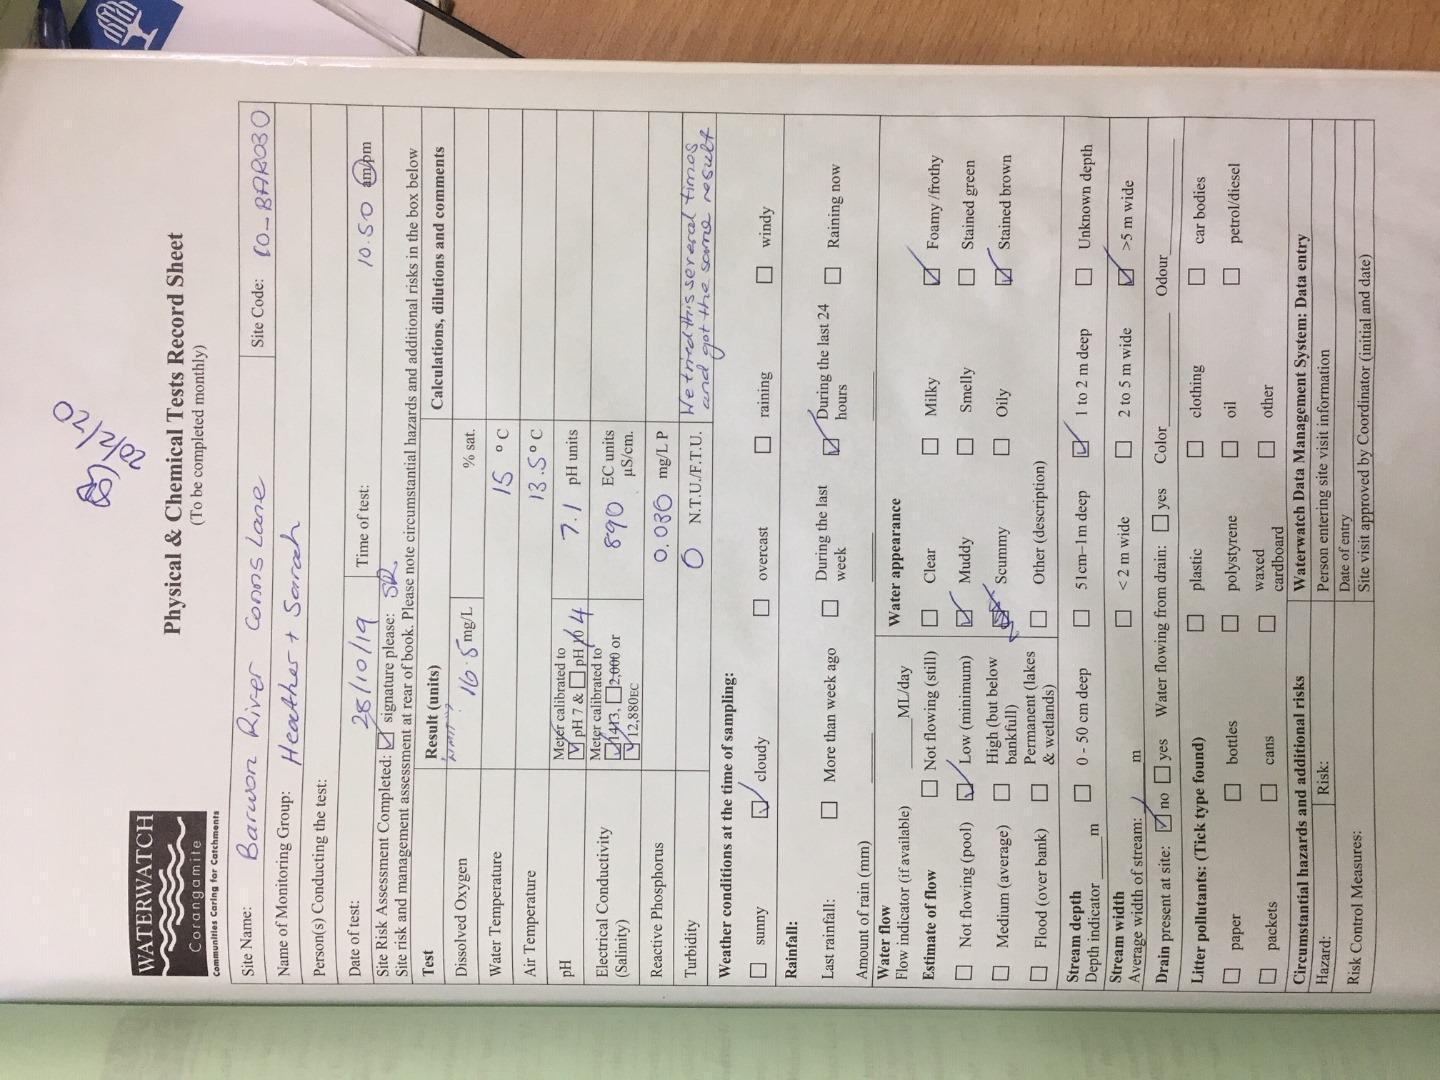 02/2/02
WATERWATCH
Corangamite
Communities Caring for Catchments
Physical & Chemical Tests Record Sheet
(To be completed monthly)
Site Name: Barwon River Conns Lane Site Code: CO-BAR030
Name of Monitoring Group: Heather + Sarah
Person(s) Conducting the test:
Date of test: 28/10/19 Time of test: 10.50 am/pm
Site Risk Assessment Completed: ☑ signature please: SR
Site risk and management assessment at rear of book. Please note circumstantial hazards and additional risks in the box below
Test Result (units) Calculations, dilutions and comments
Dissolved Oxygen 16.5 mg/L % sat.
Water Temperature 15 °C
Air Temperature 13.5 °C
pH Meter calibrated to ☑ pH 7 & ☐ pH 10 4 7.1 pH units
Electrical Conductivity (Salinity) Meter calibrated to ☑ 1413, ☐ 2,000 or ☑ 12,880EC 890 EC units µS/cm.
Reactive Phosphorus 0.080 mg/L P
Turbidity 0 N.T.U./F.T.U. We tried this several times
and got the same result
Weather conditions at the time of sampling:
☐ sunny ☑ cloudy ☐ overcast ☐ raining ☐ windy
Rainfall:
Last rainfall: ☐ More than week ago ☐ During the last week ☑ During the last 24 hours ☐ Raining now
Amount of rain (mm)
Water flow
Flow indicator (if available) ML/day
Estimate of flow ☐ Not flowing (still)
☐ Not flowing (pool) ☑ Low (minimum)
☐ Medium (average) ☐ High (but below bankfull)
☐ Flood (over bank) ☐ Permanent (lakes & wetlands)
Water appearance
☐ Clear ☐ Milky ☑ Foamy /frothy
☑ Muddy ☐ Smelly ☐ Stained green
Scummy ☐ Oily ☑ Stained brown
☐ Other (description)
Stream depth
Depth indicator m ☐ 0 - 50 cm deep ☐ 51cm-1m deep ☑ 1 to 2 m deep ☐ Unknown depth
Stream width
Average width of stream: m ☐ < 2 m wide ☐ 2 to 5 m wide ☑ >5 m wide
Drain present at site: ☑ no ☐ yes Water flowing from drain: ☐ yes Color Odour
Litter pollutants: (Tick type found) ☐ plastic ☐ clothing ☐ car bodies
☐ paper ☐ bottles ☐ polystyrene ☐ oil ☐ petrol/diesel
☐ packets ☐ cans ☐ waxed cardboard ☐ other
Circumstantial hazards and additional risks
Hazard: Risk:
Risk Control Measures:
Waterwatch Data Management System: Data entry
Person entering site visit information
Date of entry
Site visit approved by Coordinator (initial and date)